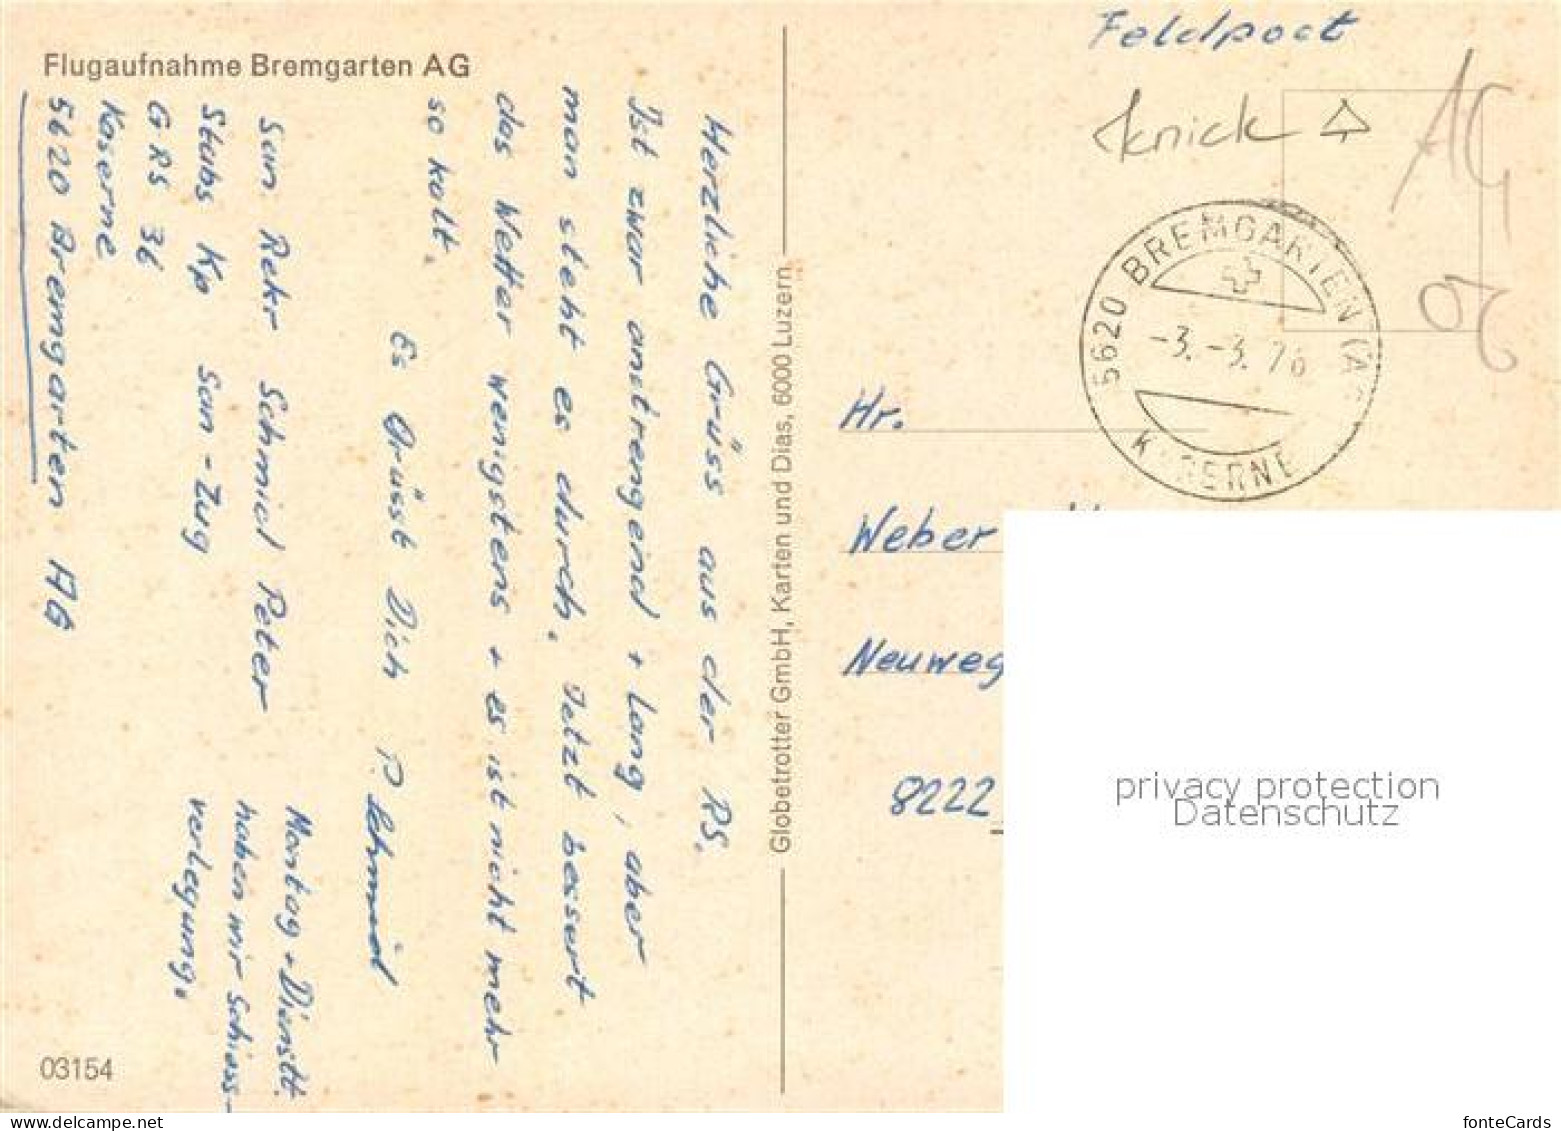 Flugaufnahme Bremgarten AG
Herzliche Grüss aus der RS.
Ist zwar anstrengend + lang, aber
man steht es durch. Jetzt bessert
das Wetter wenigstens + es ist nicht mehr
so kalt.
Es Grüsst Dich P. Schmid
San Rekr Schmid Peter
Stabs Kp San-Zug
G RS 36
Kaserne
5620 Bremgarten AG
Montag + Dienst.
haben wir Schiess-
verlegung.
03154
Globetrotter GmbH, Karten und Dias, 6000 Luzern
Feldpost
Knick
AG
5620 BREMGARTEN (A
-3.-3.76
KASERNE
Hr.
Weber
Neuweg
8222
privacy protection
Datenschutz
delcampe.net
fonteCards